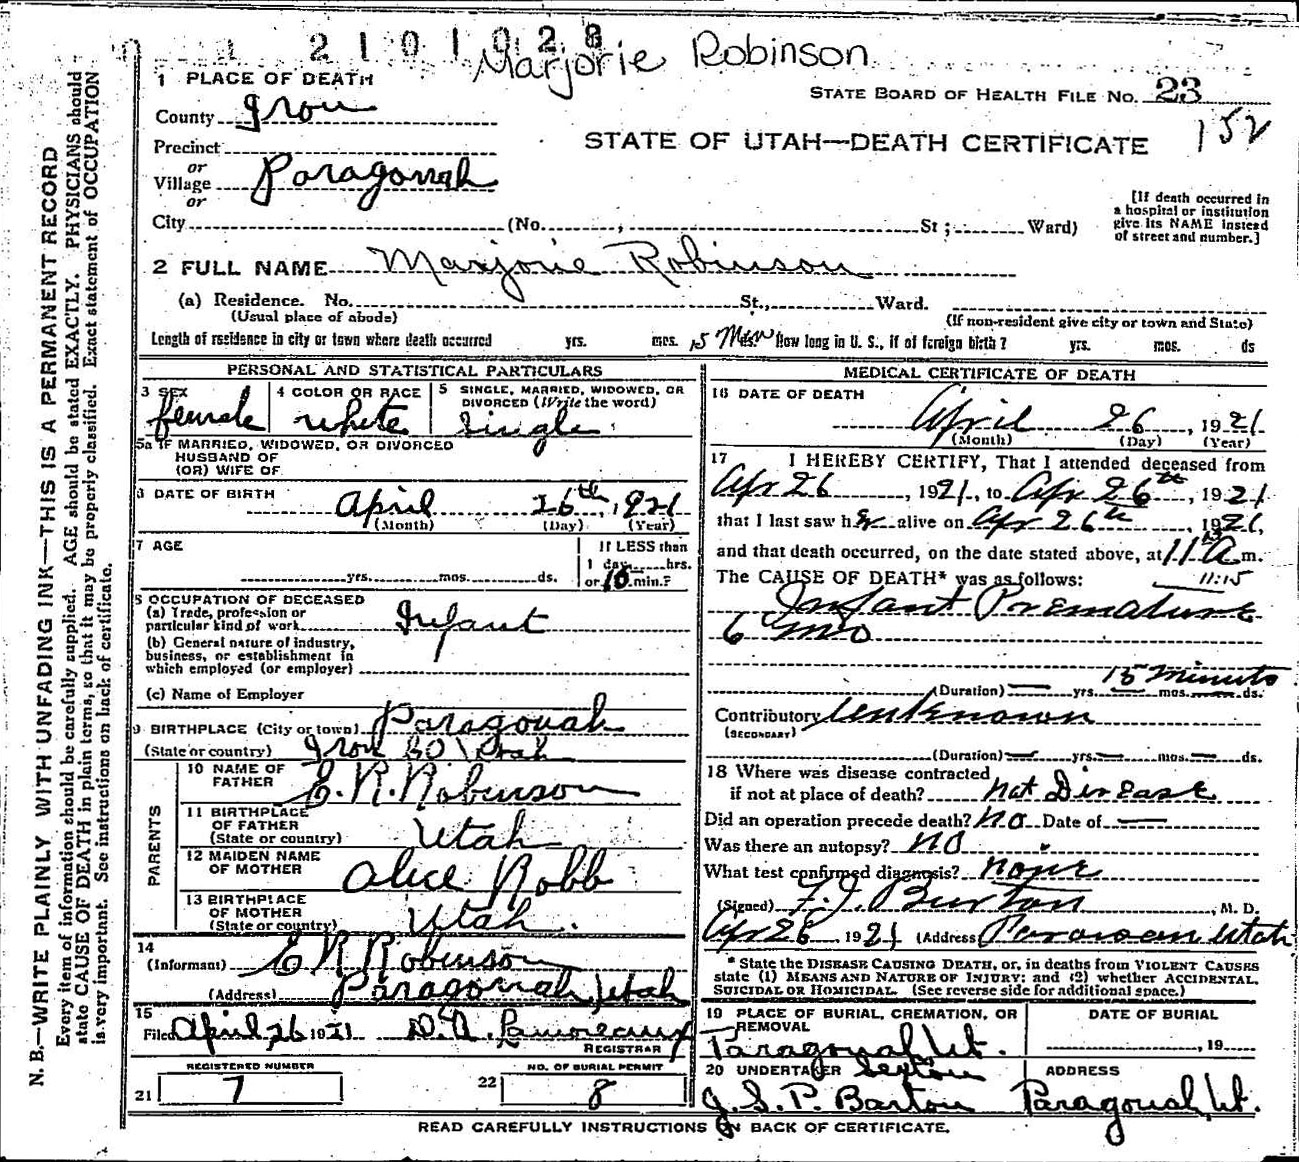 2101028
Marjorie Robinson
1 PLACE OF DEATH
STATE BOARD OF HEALTH FILE No. 23
County Iron
152
STATE OF UTAH—DEATH CERTIFICATE
Precinct
or
Village Paragonah
or
[If death occurred in a hospital or institution give its NAME instead of street and number.]
City (No. , St ; Ward)
2 FULL NAME Marjorie Robinson
(a) Residence. No. St., Ward.
(Usual place of abode) (If non-resident give city or town and State)
Length of residence in city or town where death occurred yrs. mos. 15 Min ds. How long in U. S., if of foreign birth? yrs. mos. ds
PERSONAL AND STATISTICAL PARTICULARS
3 SEX female
4 COLOR OR RACE white
5 SINGLE, MARRIED, WIDOWED, OR DIVORCED (Write the word) Single
5a IF MARRIED, WIDOWED, OR DIVORCED
HUSBAND OF
(OR) WIFE OF
6 DATE OF BIRTH April 26th, 1921
(Month) (Day) (Year)
7 AGE yrs. mos. ds.
If LESS than 1 day hrs. or 15 min.?
8 OCCUPATION OF DECEASED
(a) Trade, profession or particular kind of work Infant
(b) General nature of industry, business, or establishment in which employed (or employer)
(c) Name of Employer
9 BIRTHPLACE (City or town) Paragonah
(State or country) Iron CO Utah
PARENTS
10 NAME OF FATHER E. R. Robinson
11 BIRTHPLACE OF FATHER (State or country) Utah
12 MAIDEN NAME OF MOTHER Alice Robb
13 BIRTHPLACE OF MOTHER (State or country) Utah.
14
(Informant) E R Robinson
(Address) Paragonah, Utah
15
Filed April 26 1921 D. A. Lamoreaux
REGISTRAR
REGISTERED NUMBER
21 7
NO. OF BURIAL PERMIT
22 8
MEDICAL CERTIFICATE OF DEATH
16 DATE OF DEATH
April 26, 1921
(Month) (Day) (Year)
17 I HEREBY CERTIFY, That I attended deceased from
Apr 26, 1921, to Apr 26th, 1921
that I last saw her alive on Apr 26th, 1921,
and that death occurred, on the date stated above, at 11 15 A m.
The CAUSE OF DEATH* was as follows: 11:15
Infant Premature
6 mo
15 Minuts
(Duration) — yrs. — mos. — ds.
Contributory Unknown
(SECONDARY)
(Duration) — yrs. — mos. — ds.
18 Where was disease contracted
if not at place of death? not Disease
Did an operation precede death? No Date of —
Was there an autopsy? NO
What test confirmed diagnosis? none
(Signed) F. J. Burton, M. D.
Apr 26 1921 (Address) Parowan Utah
* State the DISEASE CAUSING DEATH, or, in deaths from VIOLENT CAUSES
state (1) MEANS AND NATURE OF INJURY; and (2) whether ACCIDENTAL,
SUICIDAL OR HOMICIDAL. (See reverse side for additional space.)
19 PLACE OF BURIAL, CREMATION, OR REMOVAL
Paragonah, Ut.
DATE OF BURIAL
, 19
20 UNDERTAKER Sexton
J. S. P. Barton
ADDRESS
Paragonah, Ut.
READ CAREFULLY INSTRUCTIONS ON BACK OF CERTIFICATE.
N. B.—WRITE PLAINLY WITH UNFADING INK—THIS IS A PERMANENT RECORD
Every item of information should be carefully supplied. AGE should be stated EXACTLY. PHYSICIANS should
state CAUSE OF DEATH in plain terms, so that it may be properly classified. Exact statement of OCCUPATION
is very important. See instructions on back of certificate.